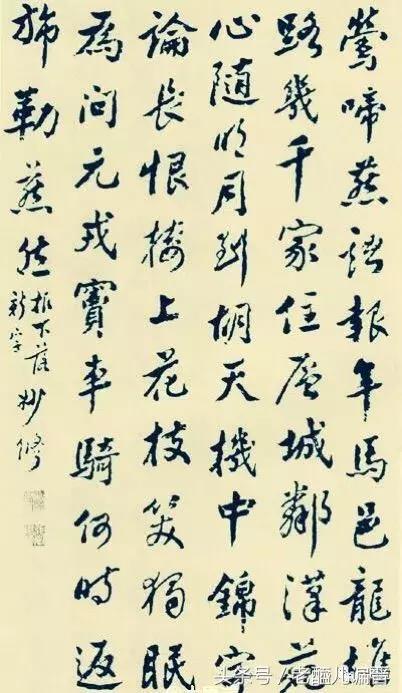 鶯啼燕語報年馬邑龍堆
路幾千家住層城鄰漢苑
心隨明月到胡天機中錦字
論長恨樓上花枝笑獨眠
為問元戎竇車騎何時返
旆勒燕然
報下落
新字
头条号 / 老醯儿编晋